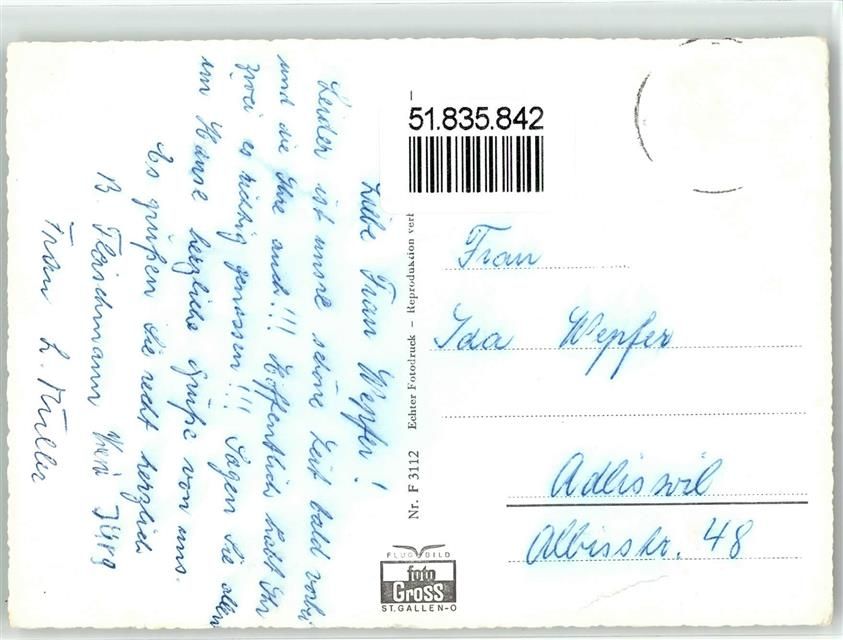 Liebe Frau Wepfer!
Leider ist unsre schöne Zeit bald vorbei
und die Ihre auch!!! Hoffentlich habt Ihr
zwei es richtig genossen!!! Sagen Sie allen
im Hause herzliche Grüße von uns.
Es grüßen Sie recht herzlich
B. Fleischmann
Frau L. Müller
Nr. F 3112 Echter Fotodruck – Reproduktion verb
51.835.842
Frau
Ida Wepfer
Adliswil
Albisstr. 48
FLUGBILD
foto
GROSS
ST.GALLEN-O